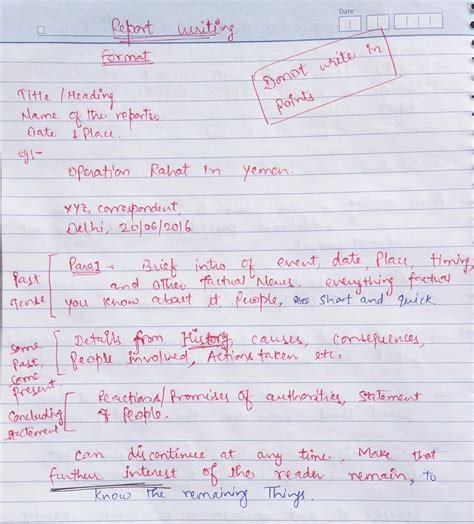 Date
Report writing
Format
Do not write in
points
Title / Heading
Name of the reporter
Date & Place.
eg:-
Operation Rahat in Yemen.
XYZ, correspondent,
Delhi, 20/06/2016
Past
Tense
Para 1 - Brief intro of event, date, Place, timing,
and other factual News. everything factual
you know about it people, Short and quick.
Some
Past,
Some
Present
Details from History, causes, consequences,
People involved, Actions taken etc.
Concluding
Statement
Reactions / Promises of authorities, Statement
of People.
can discontinue at any time, Make that
further interest of the reader remain, to
know the remaining Things.